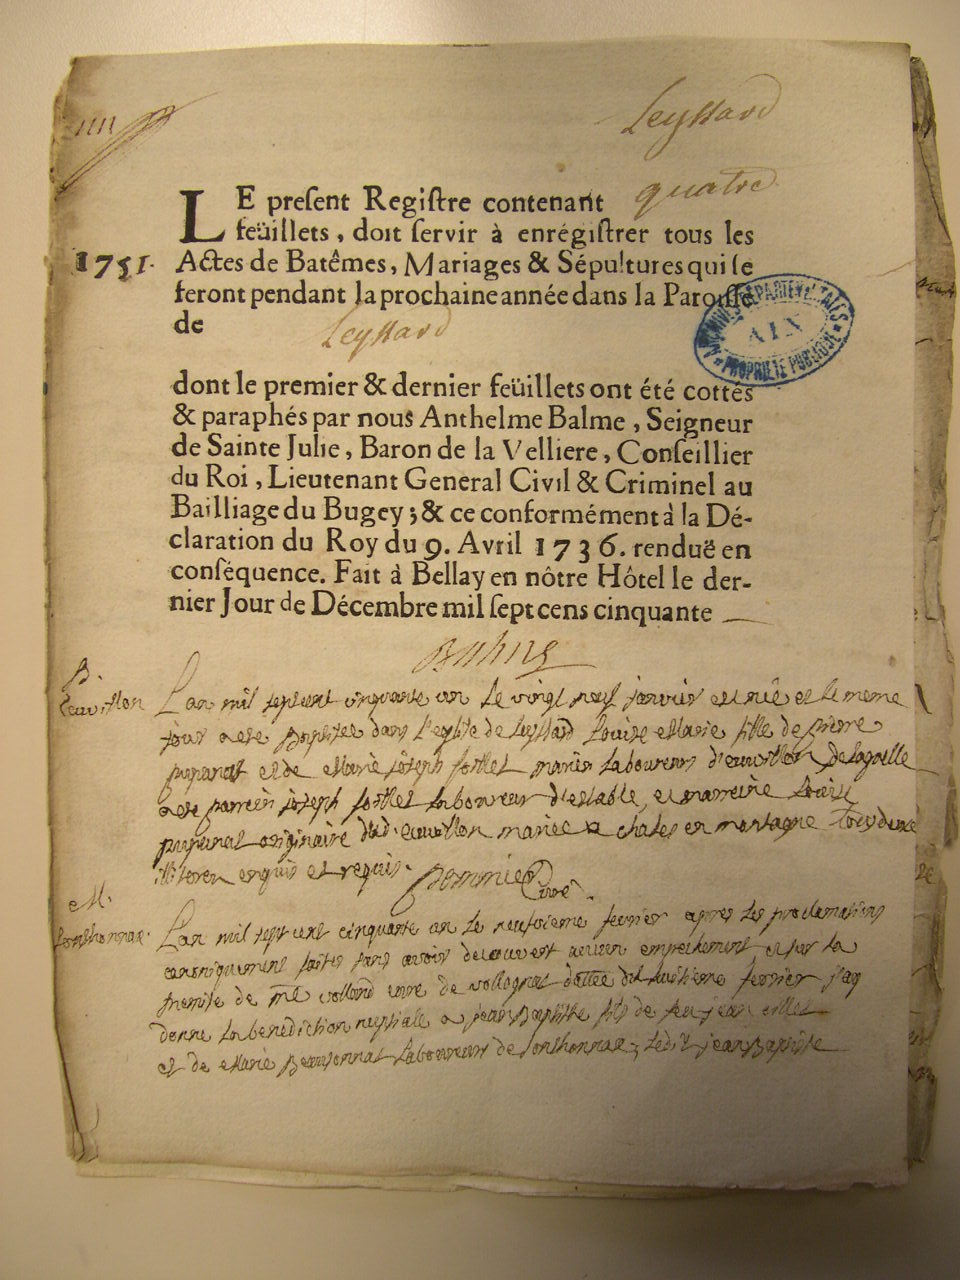 IIII
Leyssard
LE present Registre contenant quatre
feüillets, doit servir à enrégistrer tous les
1751. Actes de Batêmes, Mariages & Sépultures qui se
feront pendant la prochaine année dans la Paroisse
de Leyssard
ARCHIVES DÉPARTEMENTALES
AIN
PROPRIÉTÉ PUBLIQUE
dont le premier & dernier feüillets ont été cottés
& paraphés par nous Anthelme Balme, Seigneur
de Sainte Julie, Baron de la Velliere, Conseillier
du Roi, Lieutenant General Civil & Criminel au
Bailliage du Bugey; & ce conformément à la Dé-
claration du Roy du 9. Avril 1736. renduë en
conséquence. Fait à Bellay en nôtre Hôtel le der-
nier Jour de Décembre mil sept cens cinquante
B.
L'an mil sept cent cinquante un le vingt neuf janvier est née et le meme
jour a ete Baptisee dans l'eglise de Leyssard Louise Marie fille de pierre
et de Marie joseph mariés laboureurs de laquelle
a ete parrein joseph laboureur et marreine Louise
originaire mariee a en montagne tous deux
illiteres enquis et requis. Curé.
M.
L'an mil sept cent cinquante un le neufvieme fevrier apres les proclamations
canoniquement faites sans avoir decouvert aucun empeichement et sur la
remise de curé de dattée du huitieme fevrier j'ay
donné la benediction nuptiale a jean Baptiste fils de feu jean
et de Marie laboureur de ledit jean Baptiste